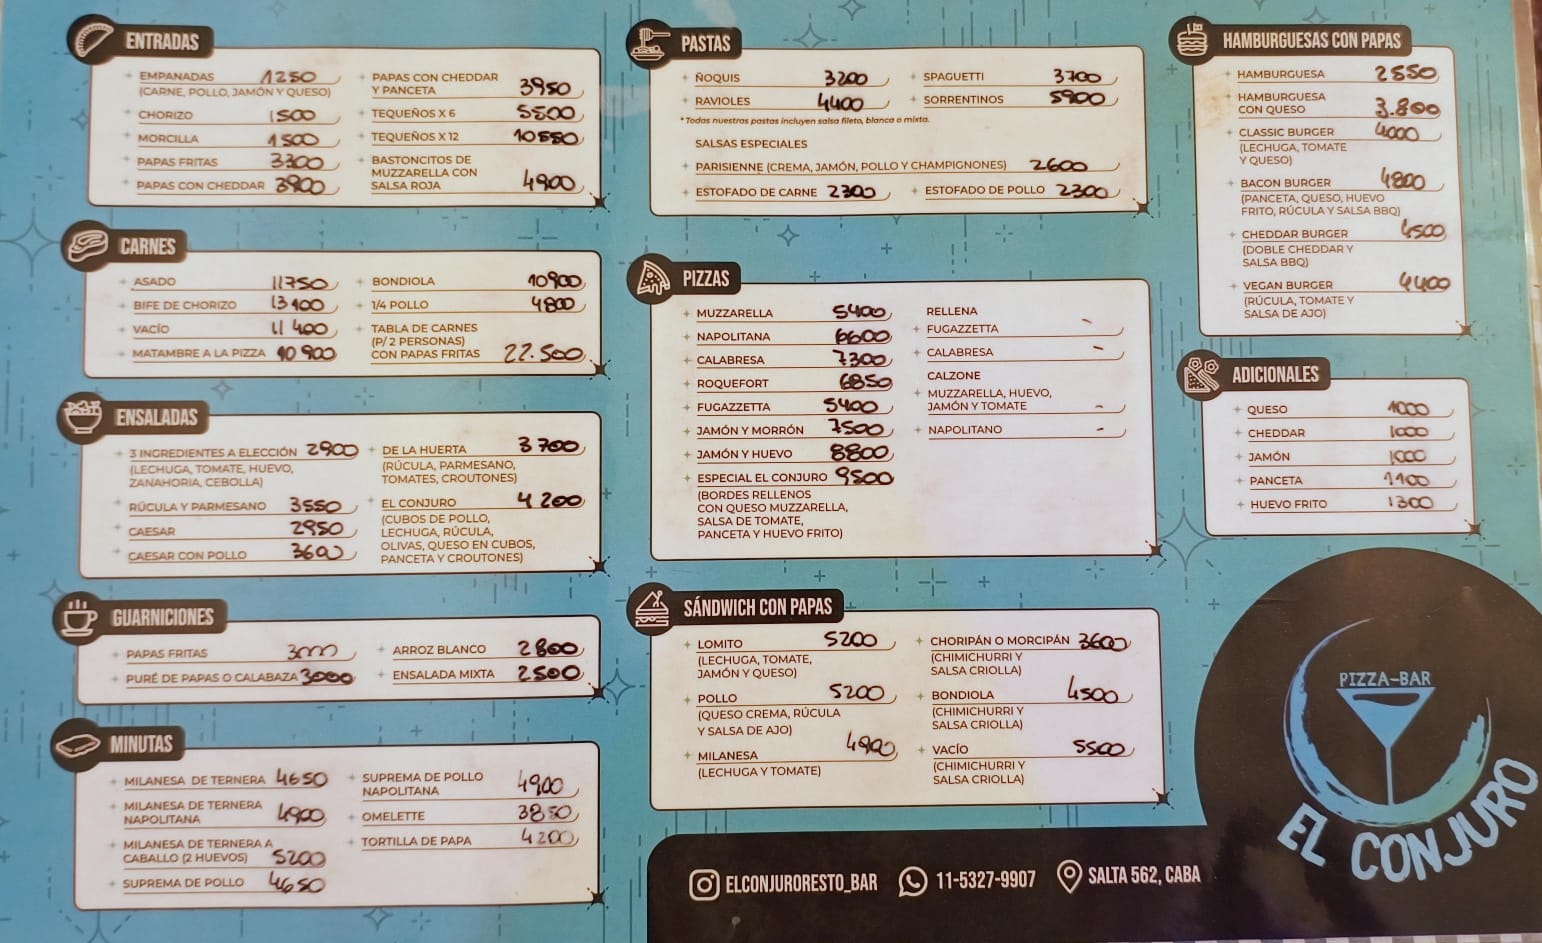 ENTRADAS
EMPANADAS 1250
(CARNE, POLLO, JAMÓN Y QUESO)
CHORIZO 1500
MORCILLA 1500
PAPAS FRITAS 3300
PAPAS CON CHEDDAR 3900
PAPAS CON CHEDDAR
Y PANCETA 3950
TEQUEÑOS X 6 5500
TEQUEÑOS X 12 10550
BASTONCITOS DE
MUZZARELLA CON
SALSA ROJA 4900
CARNES
ASADO 11750
BIFE DE CHORIZO 13100
VACÍO 11400
MATAMBRE A LA PIZZA 10900
BONDIOLA 10900
1/4 POLLO 4800
TABLA DE CARNES
(P/ 2 PERSONAS)
CON PAPAS FRITAS 22.500
ENSALADAS
3 INGREDIENTES A ELECCIÓN 2900
(LECHUGA, TOMATE, HUEVO,
ZANAHORIA, CEBOLLA)
RÚCULA Y PARMESANO 3550
CAESAR 2950
CAESAR CON POLLO 3600
DE LA HUERTA 3700
(RÚCULA, PARMESANO,
TOMATES, CROUTONES)
EL CONJURO 4200
(CUBOS DE POLLO,
LECHUGA, RÚCULA,
OLIVAS, QUESO EN CUBOS,
PANCETA Y CROUTONES)
GUARNICIONES
PAPAS FRITAS 3000
PURÉ DE PAPAS O CALABAZA 3000
ARROZ BLANCO 2800
ENSALADA MIXTA 2500
MINUTAS
MILANESA DE TERNERA 4650
MILANESA DE TERNERA
NAPOLITANA 4900
MILANESA DE TERNERA A
CABALLO (2 HUEVOS) 5200
SUPREMA DE POLLO 4650
SUPREMA DE POLLO
NAPOLITANA 4900
OMELETTE 3850
TORTILLA DE PAPA 4200
PASTAS
ÑOQUIS 3200
RAVIOLES 4400
SPAGUETTI 3700
SORRENTINOS 5900
* Todas nuestras pastas incluyen salsa fileto, blanca o mixta.
SALSAS ESPECIALES
PARISIENNE (CREMA, JAMÓN, POLLO Y CHAMPIGNONES) 2600
ESTOFADO DE CARNE 2300
ESTOFADO DE POLLO 2300
PIZZAS
MUZZARELLA 5400
NAPOLITANA 6600
CALABRESA 7300
ROQUEFORT 6850
FUGAZZETTA 5400
JAMÓN Y MORRÓN 7500
JAMÓN Y HUEVO 8800
ESPECIAL EL CONJURO 9500
(BORDES RELLENOS
CON QUESO MUZZARELLA,
SALSA DE TOMATE,
PANCETA Y HUEVO FRITO)
RELLENA
FUGAZZETTA -
CALABRESA -
CALZONE
MUZZARELLA, HUEVO,
JAMÓN Y TOMATE -
NAPOLITANO -
SÁNDWICH CON PAPAS
LOMITO 5200
(LECHUGA, TOMATE,
JAMÓN Y QUESO)
POLLO 5200
(QUESO CREMA, RÚCULA
Y SALSA DE AJO)
MILANESA 4900
(LECHUGA Y TOMATE)
CHORIPÁN O MORCIPÁN 3600
(CHIMICHURRI Y
SALSA CRIOLLA)
BONDIOLA 4500
(CHIMICHURRI Y
SALSA CRIOLLA)
VACÍO 5500
(CHIMICHURRI Y
SALSA CRIOLLA)
HAMBURGUESAS CON PAPAS
HAMBURGUESA 2550
HAMBURGUESA
CON QUESO 3.800
CLASSIC BURGER 4000
(LECHUGA, TOMATE
Y QUESO)
BACON BURGER 4800
(PANCETA, QUESO, HUEVO
FRITO, RÚCULA Y SALSA BBQ)
CHEDDAR BURGER 4500
(DOBLE CHEDDAR Y
SALSA BBQ)
VEGAN BURGER 4400
(RÚCULA, TOMATE Y
SALSA DE AJO)
ADICIONALES
QUESO 1000
CHEDDAR 1000
JAMÓN 1000
PANCETA 1100
HUEVO FRITO 1300
PIZZA-BAR
EL CONJURO
ELCONJURORESTO_BAR 11-5327-9907 SALTA 562, CABA